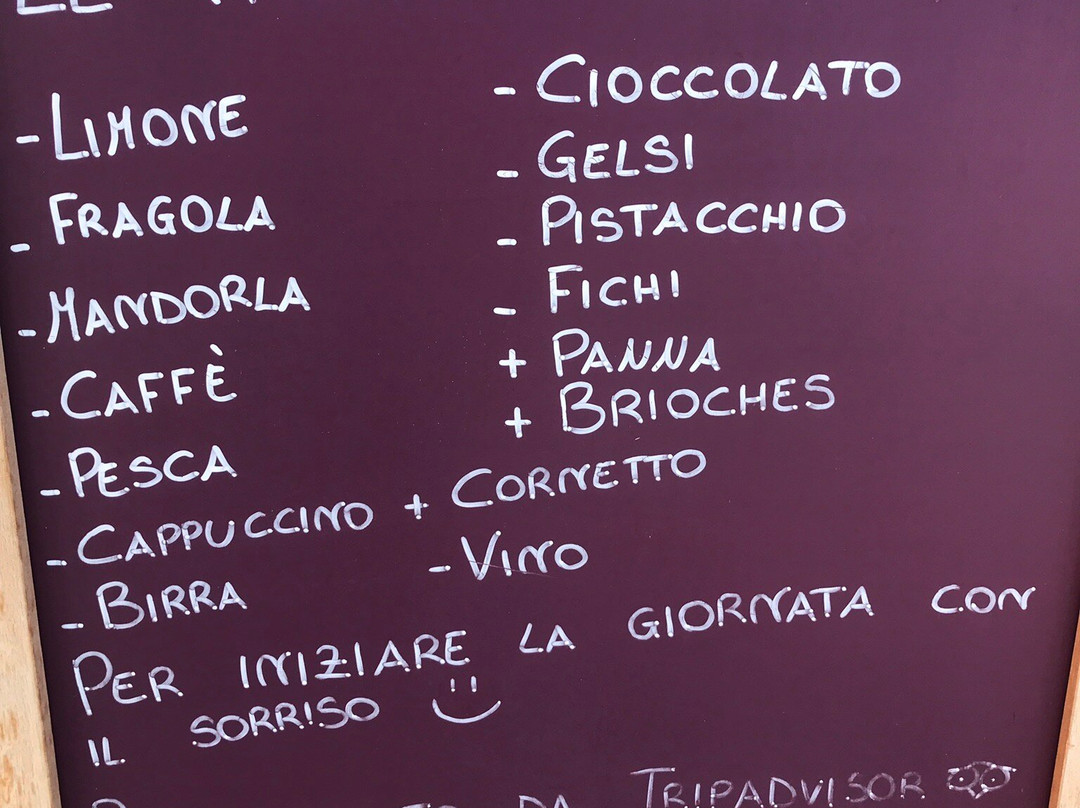 - LIMONE
- FRAGOLA
- MANDORLA
- CAFFÈ
- PESCA
- CIOCCOLATO
- GELSI
- PISTACCHIO
- FICHI
+ PANNA
+ BRIOCHES
- CAPPUCCINO + CORNETTO
- BIRRA - VINO
PER INIZIARE LA GIORNATA CON
IL SORRISO
DA TRIPADVISOR